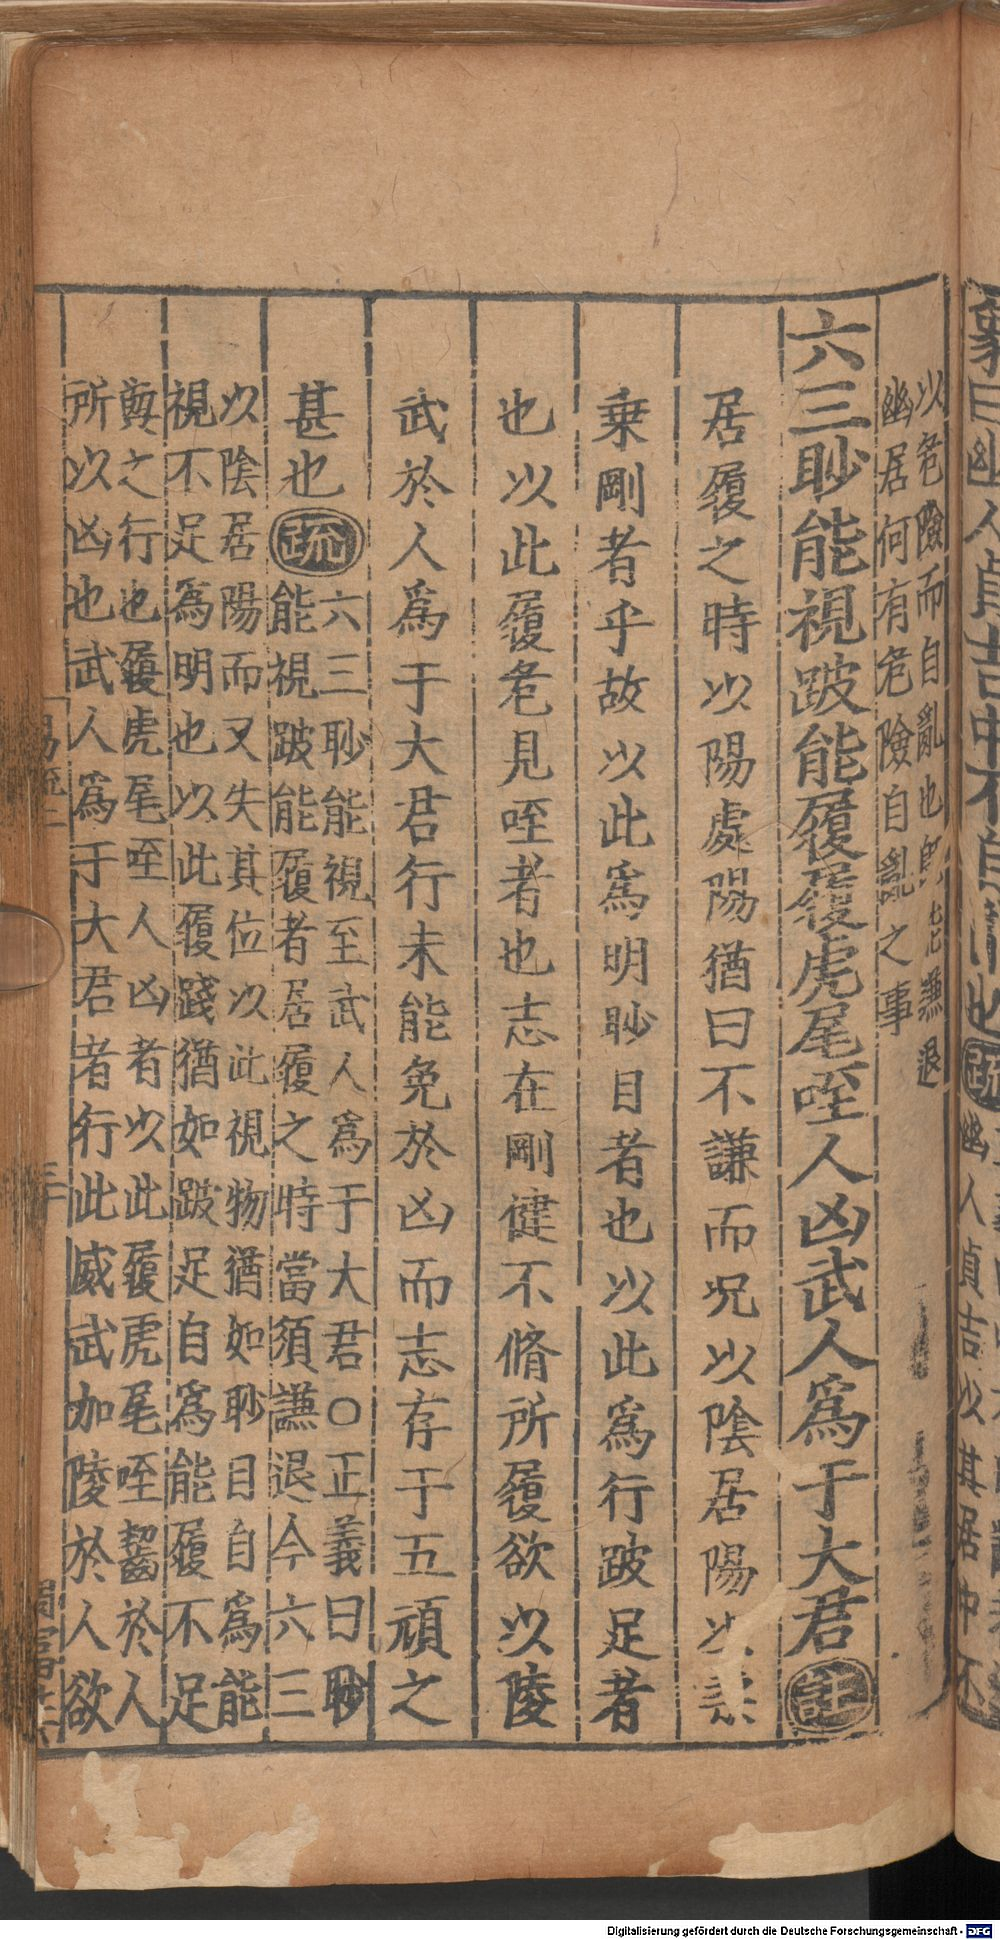 以危險而自亂也既能謙退
幽居何有危險自亂之事
六三眇能視跛能履履虎尾咥人凶武人爲于大君註
居履之時以陽處陽猶曰不謙而況以陰居陽以柔
乗剛者乎故以此爲明眇目者也以此爲行跛足者
也以此履危見咥者也志在剛健不脩所履欲以陵
武於人爲于大君行未能免於凶而志存于五頑之
甚也疏
六三眇能視至武人爲于大君○正義曰眇
能視跛能履者居履之時當須謙退今六三
以陰居陽而又失其位以此視物猶如眇目自爲能
視不足爲明也以此履踐猶如跛足自爲能履不足
與之行也履虎尾咥人凶者以此履虎尾咥齧於人
所以凶也武人爲于大君者行此威武加陵於人欲
易疏二
Digitalisierung gefördert durch die Deutsche Forschungsgemeinschaft - DFG